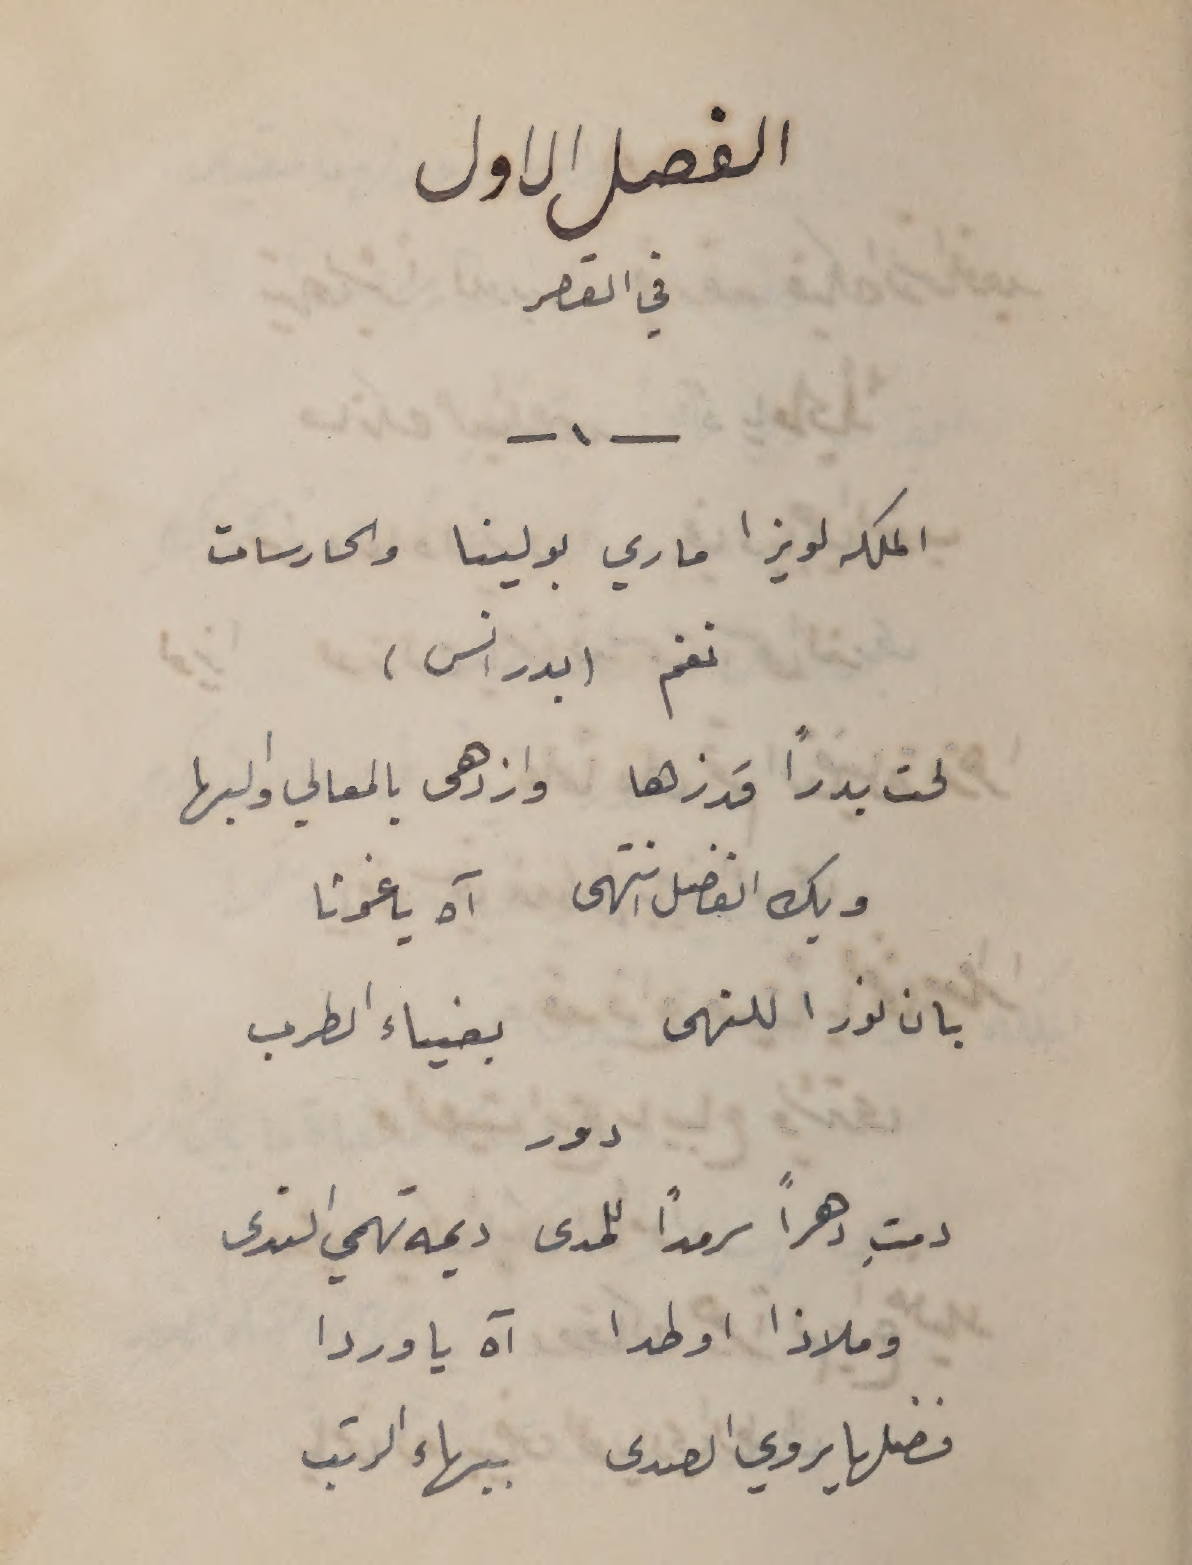 الفصل الاول
في القصر
— ١ —
الملكه لويزا ماري بولينا والحارسات
نغم (بدر انس)
لحت بدراً قد زها وازدهى بالمعالي والبها
وبك الفضل انتهى آه يا غوثا
بان نورا للنهى بضياء الطرب
دور
دمتِ دهراً سرمداً للمدى ديمه تهمي الندى
وملاذا اوطدا آه يا وردا
فضلها يروي الصدى ببهاء الرتب